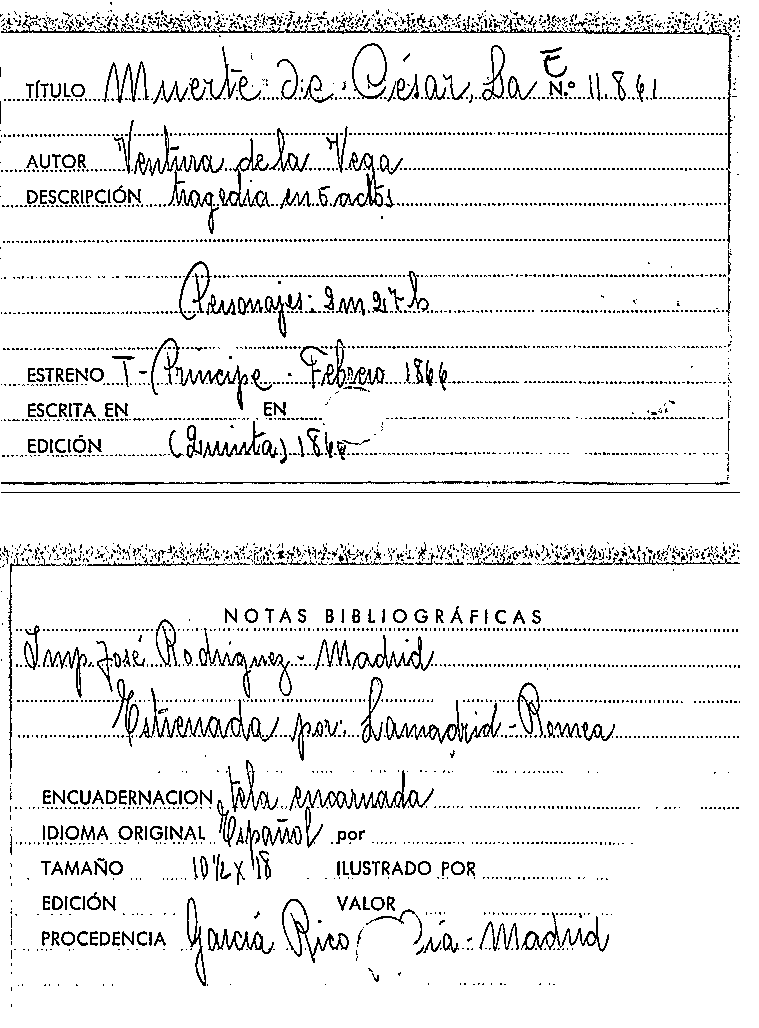 E
TÍTULO Muerte de César, La N.º 11.861
AUTOR Ventura de la Vega
DESCRIPCIÓN tragedia en 5 actos
Personajes: 2 m 27 h
ESTRENO T- Príncipe - Febrero 1866
ESCRITA EN EN
EDICIÓN (Quinta) 1866
NOTAS BIBLIOGRÁFICAS
Imp. José Rodriguez - Madrid
Estrenada por: Lamadrid - Romea
ENCUADERNACION tela encarnada
IDIOMA ORIGINAL Español por
TAMAÑO 10½ x 18 ILUSTRADO POR
EDICIÓN VALOR
PROCEDENCIA García Rico - Madrid